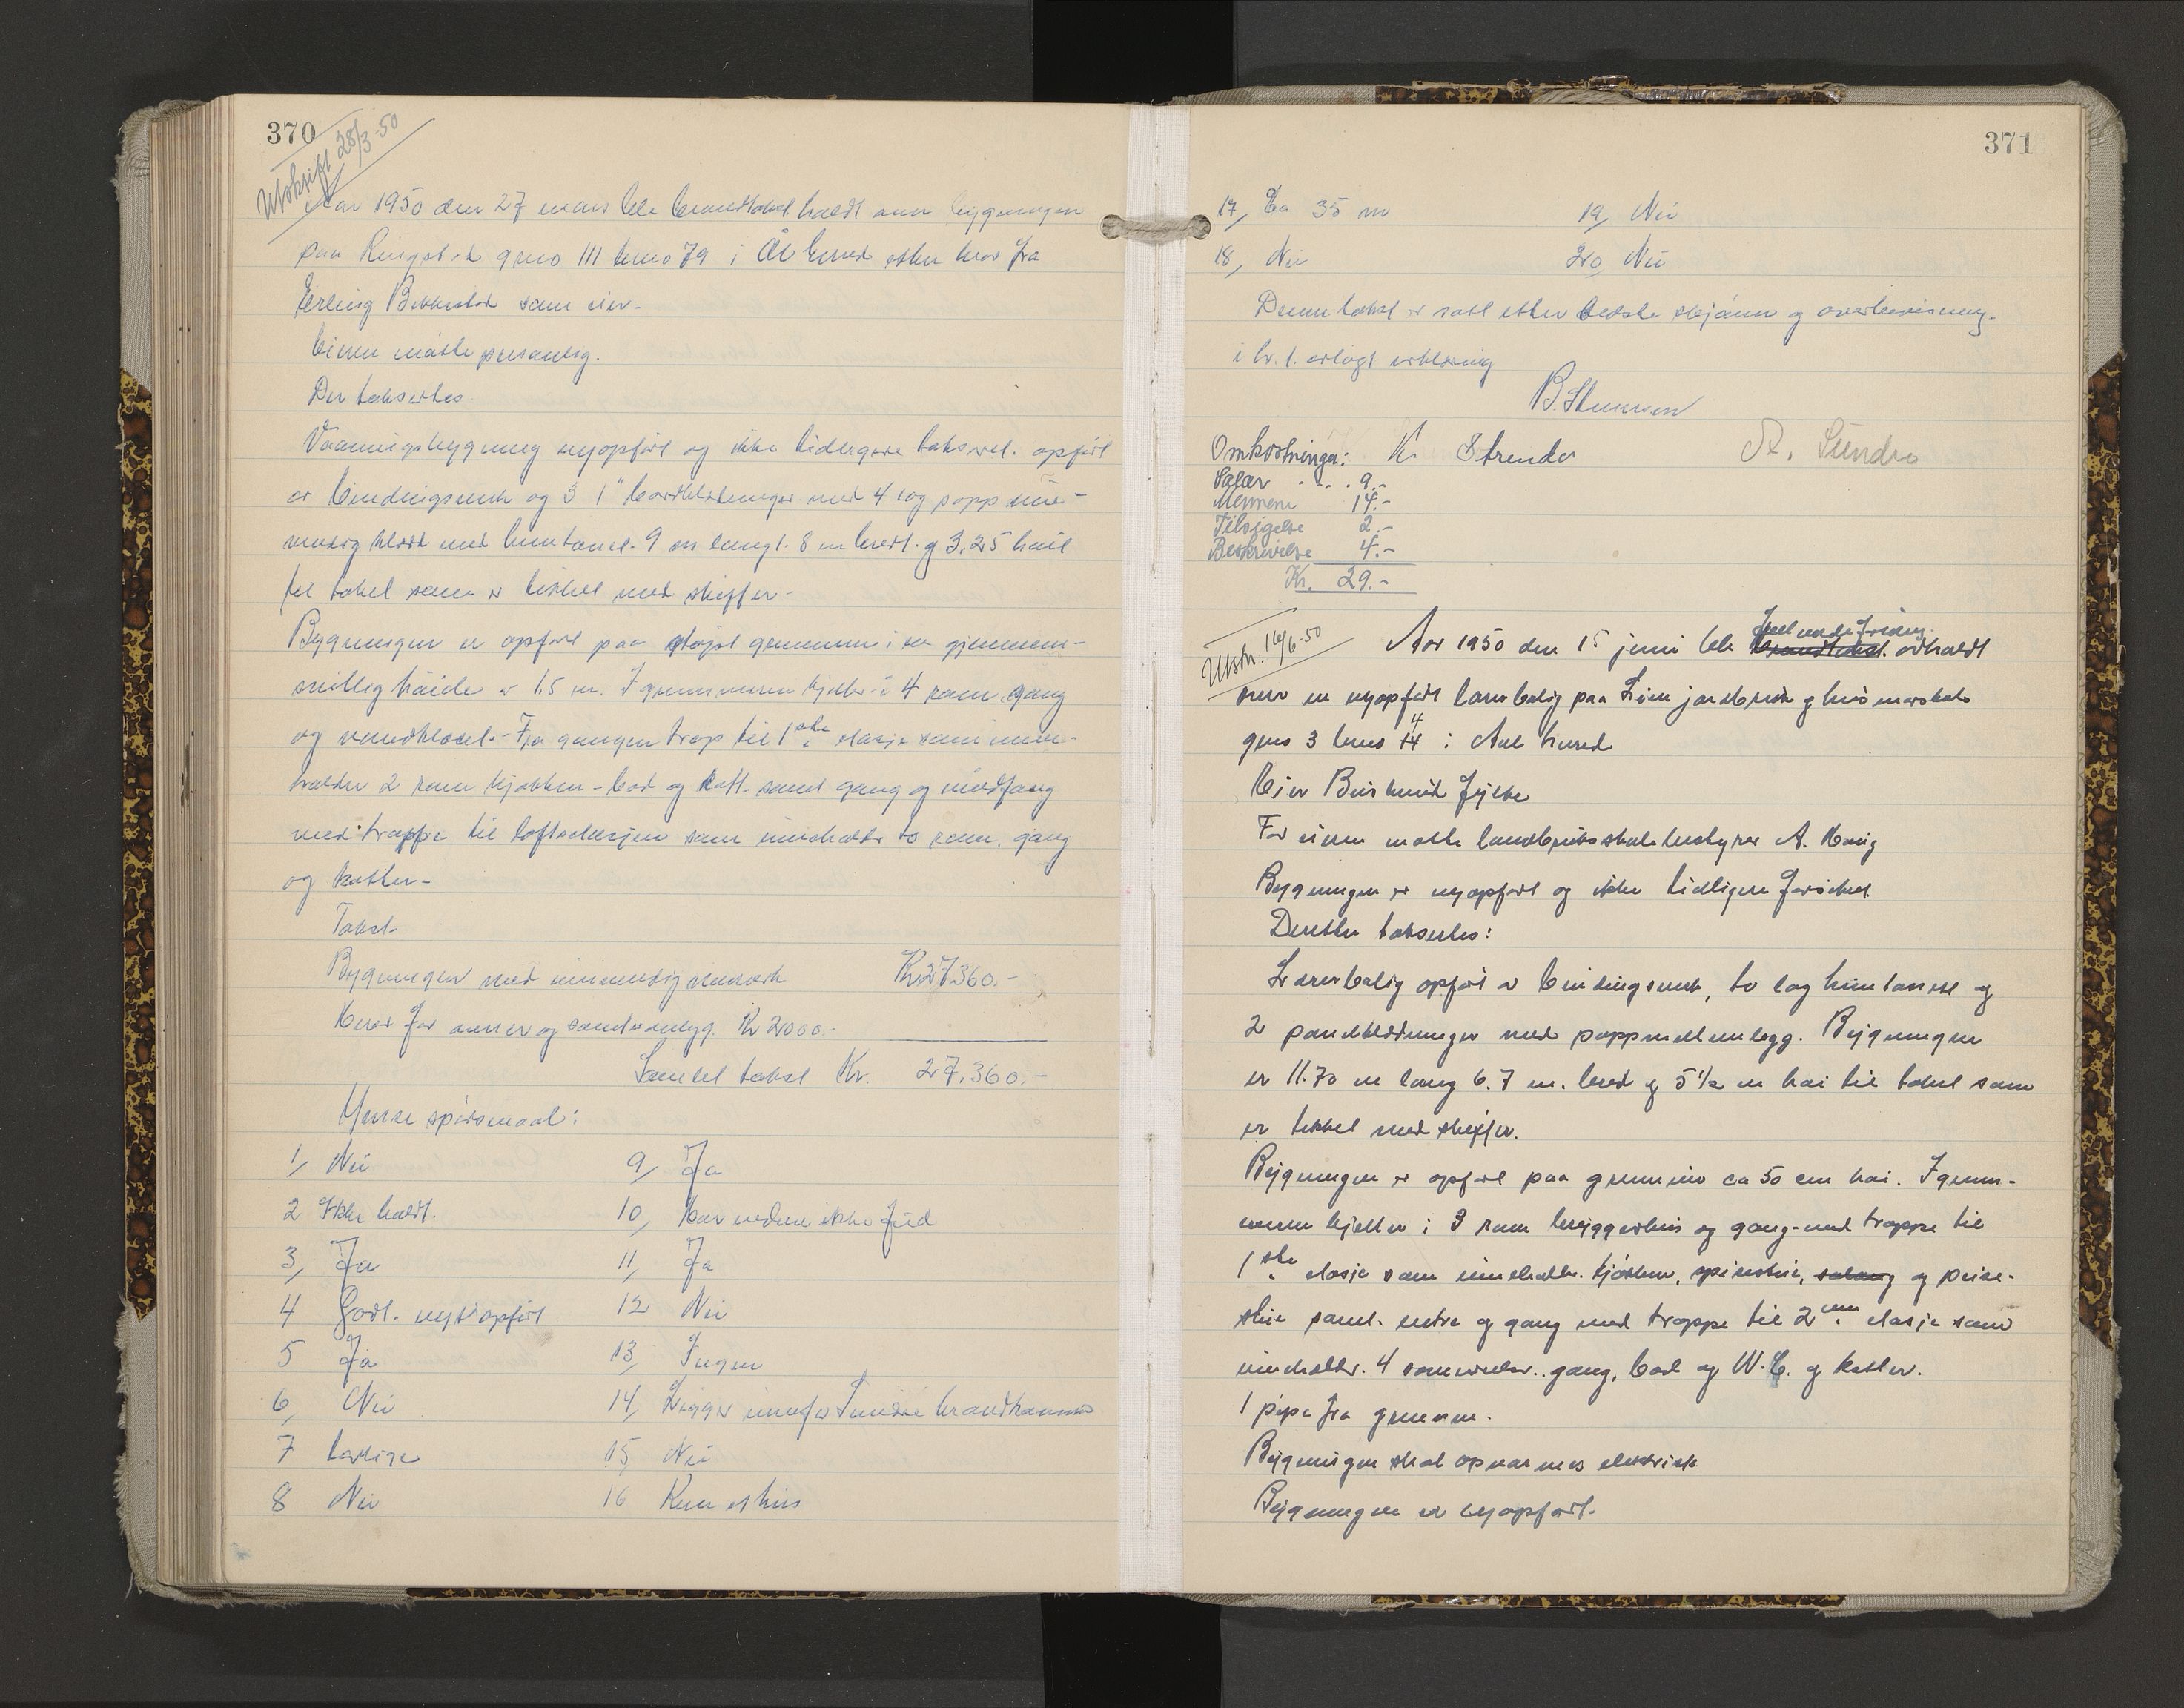 370
Utskrift 28/3-50
Aar 1950 den 27 mars ble brandtakst holdt over bygningen
paa gno 111 bno 79 i Ål herred etter krav fra
Erling som eier.
Eieren møtte personlig.
Der takseres
Vaaningsbygning nyopført og ikke tidligere taksert. opført
av bindingsverk og 3 1" bordkledninger med 4 lag papp inn-
vendig kledd med 9 m langt. 8 m bredt. og 3,25 høit
til taket som er tekket med skiffer-
Bygningen er opført paa støpt grunnmur i en gjennem-
snittlig høide av 1.5 m. I grunnmuren kjeller i 4 rom, gang
og vandklosel. Fra gangen trap til 1ste etasje som inne-
holder 2 rom kjøkken - bad og kott. samt gang og vindfang
med trappe til loftsetasjen som inneholder to rom, gang
og kotter-
Takst-
Bygningen med innvendig Kr 27360.-
for og Kr 2000.-
Samlet takst Kr. 27.360.-
spørsmaal:
1, Nei 9, Ja
2 Ikke holdt. 10, Har vedum ikke ført
3, Ja 11, Ja
4 Godt. nyt opført 12 Nei
5 Ja 13, Ingen
6, Nei 14, Ligger innefor brandkommune
7 8 Nei 15, Nei
16 Kun et hus
371
17, Ca 35 m 19, Nei
18, Nei 20, Nei
Denne takst er satt etter bedste skjønn og overbevisning.
i h.t. avlagt erklæring
K. Strenda A. Sundro
Omkostninger:
Salær . . . . 9.-
Mennene 14.-
Tilsigelse 2.-
Beskrivelse 4.-
Kr. 29.-
Utskr. 16/6-50
Aar 1950 den 15 juni ble brandtakst. avholdt
over en nyopført lærerbolig paa Lien jordbruk og husmorskole
gno 3 bno 4 i Aal herred
Eier Buskerud fylke
For eieren møtte landbruksskolebestyrer A. Haug
Bygningen er nyopført og ikke tidligere forsikret.
Deretter takseres:
Lærerbolig opført av bindingsverk, to lag og
2 panelkledninger med pappmellemlegg. Bygningen
er 11.70 m lang 6.7 m. bred og 5 1/2 m høi til taket som
er tekket med skiffer.
Bygningen er opført paa grunnmur ca 50 cm høi. I grunn-
muren kjeller i 3 rom bryggerhus og gang med trappe til
1ste etasje som inneholder. kjøkken, spisestue, og peise-
stue samt. entre og gang med trappe til 2nen etasje som
inneholder. 4 soverom. gang, bad og W.C. og kotter.
1 pipe fra grunnen.
Bygningen skal opvarmes elektrisk
Bygningen er nyopført.